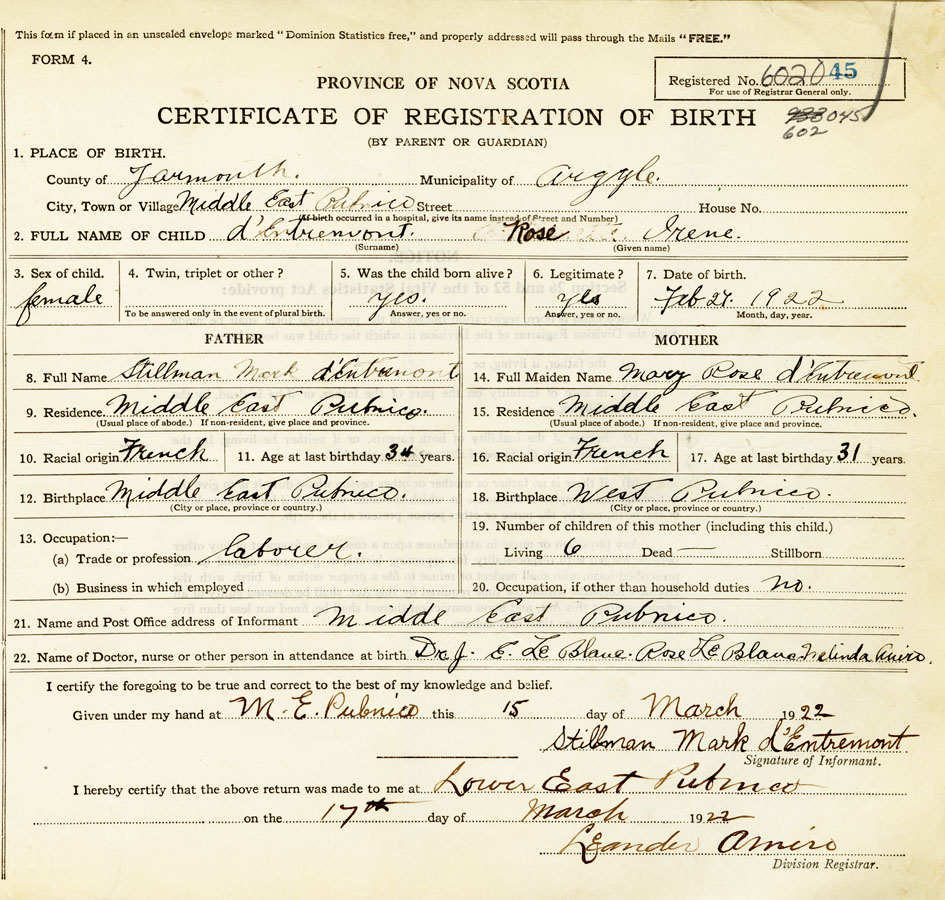 This form if placed in an unsealed envelope marked "Dominion Statistics free," and properly addressed will pass through the Mails "FREE."
FORM 4.
Registered No. 6020 45
For use of Registrar General only.
PROVINCE OF NOVA SCOTIA
CERTIFICATE OF REGISTRATION OF BIRTH
045
602
(BY PARENT OR GUARDIAN)
1. PLACE OF BIRTH.
County of Yarmouth. Municipality of Argyle.
City, Town or Village Middle East Pubnico Street House No.
(If birth occurred in a hospital, give its name instead of Street and Number)
2. FULL NAME OF CHILD d'Entremont. Rose Irene.
(Surname) (Given name)
3. Sex of child. 4. Twin, triplet or other? 5. Was the child born alive? 6. Legitimate? 7. Date of birth.
female yes. yes Feb 27. 1922
To be answered only in the event of plural birth. Answer, yes or no. Answer, yes or no. Month, day, year.
FATHER MOTHER
8. Full Name Stillman Mark d'Entremont 14. Full Maiden Name Mary Rose d'Entremont
9. Residence Middle East Pubnico. 15. Residence Middle East Pubnico.
(Usual place of abode.) If non-resident, give place and province. (Usual place of abode.) If non-resident, give place and province.
10. Racial origin French 11. Age at last birthday 34 years. 16. Racial origin French 17. Age at last birthday 31 years.
12. Birthplace Middle East Pubnico. 18. Birthplace West Pubnico.
(City or place, province or country.) (City or place, province or country.)
13. Occupation:— 19. Number of children of this mother (including this child.)
(a) Trade or profession laborer. Living 6 Dead — Stillborn
(b) Business in which employed 20. Occupation, if other than household duties no.
21. Name and Post Office address of Informant Midde East Pubnico.
22. Name of Doctor, nurse or other person in attendance at birth Dr. J. E. Le Blanc. Rose Le Blanc Amiro.
I certify the foregoing to be true and correct to the best of my knowledge and belief.
Given under my hand at M. E. Pubnico this 15 day of March 1922
Stillman Mark d'Entremont.
Signature of Informant.
I hereby certify that the above return was made to me at Lower East Pubnico
on the 17th day of March 1922
Leander Amiro
Division Registrar.